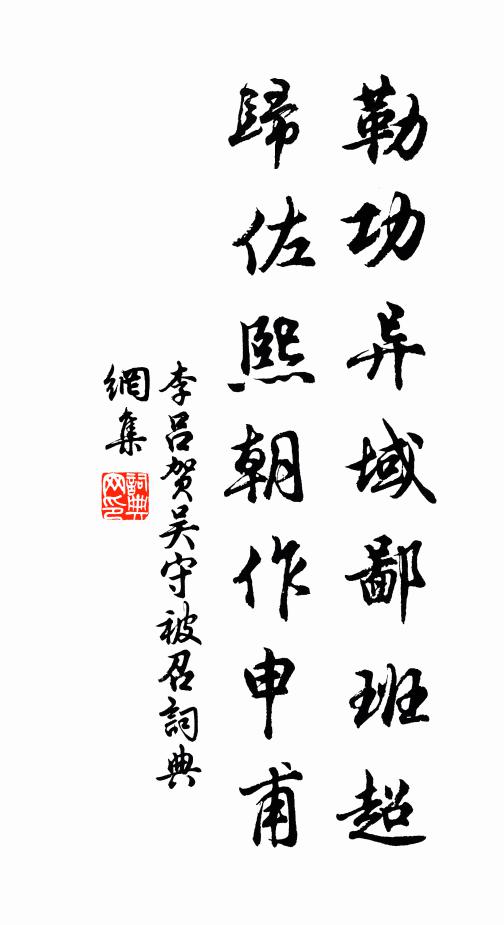 勒功异域鄙班超
歸佐熙朝作申甫
李呂賀吴守被召詞典
網集
詞典網印